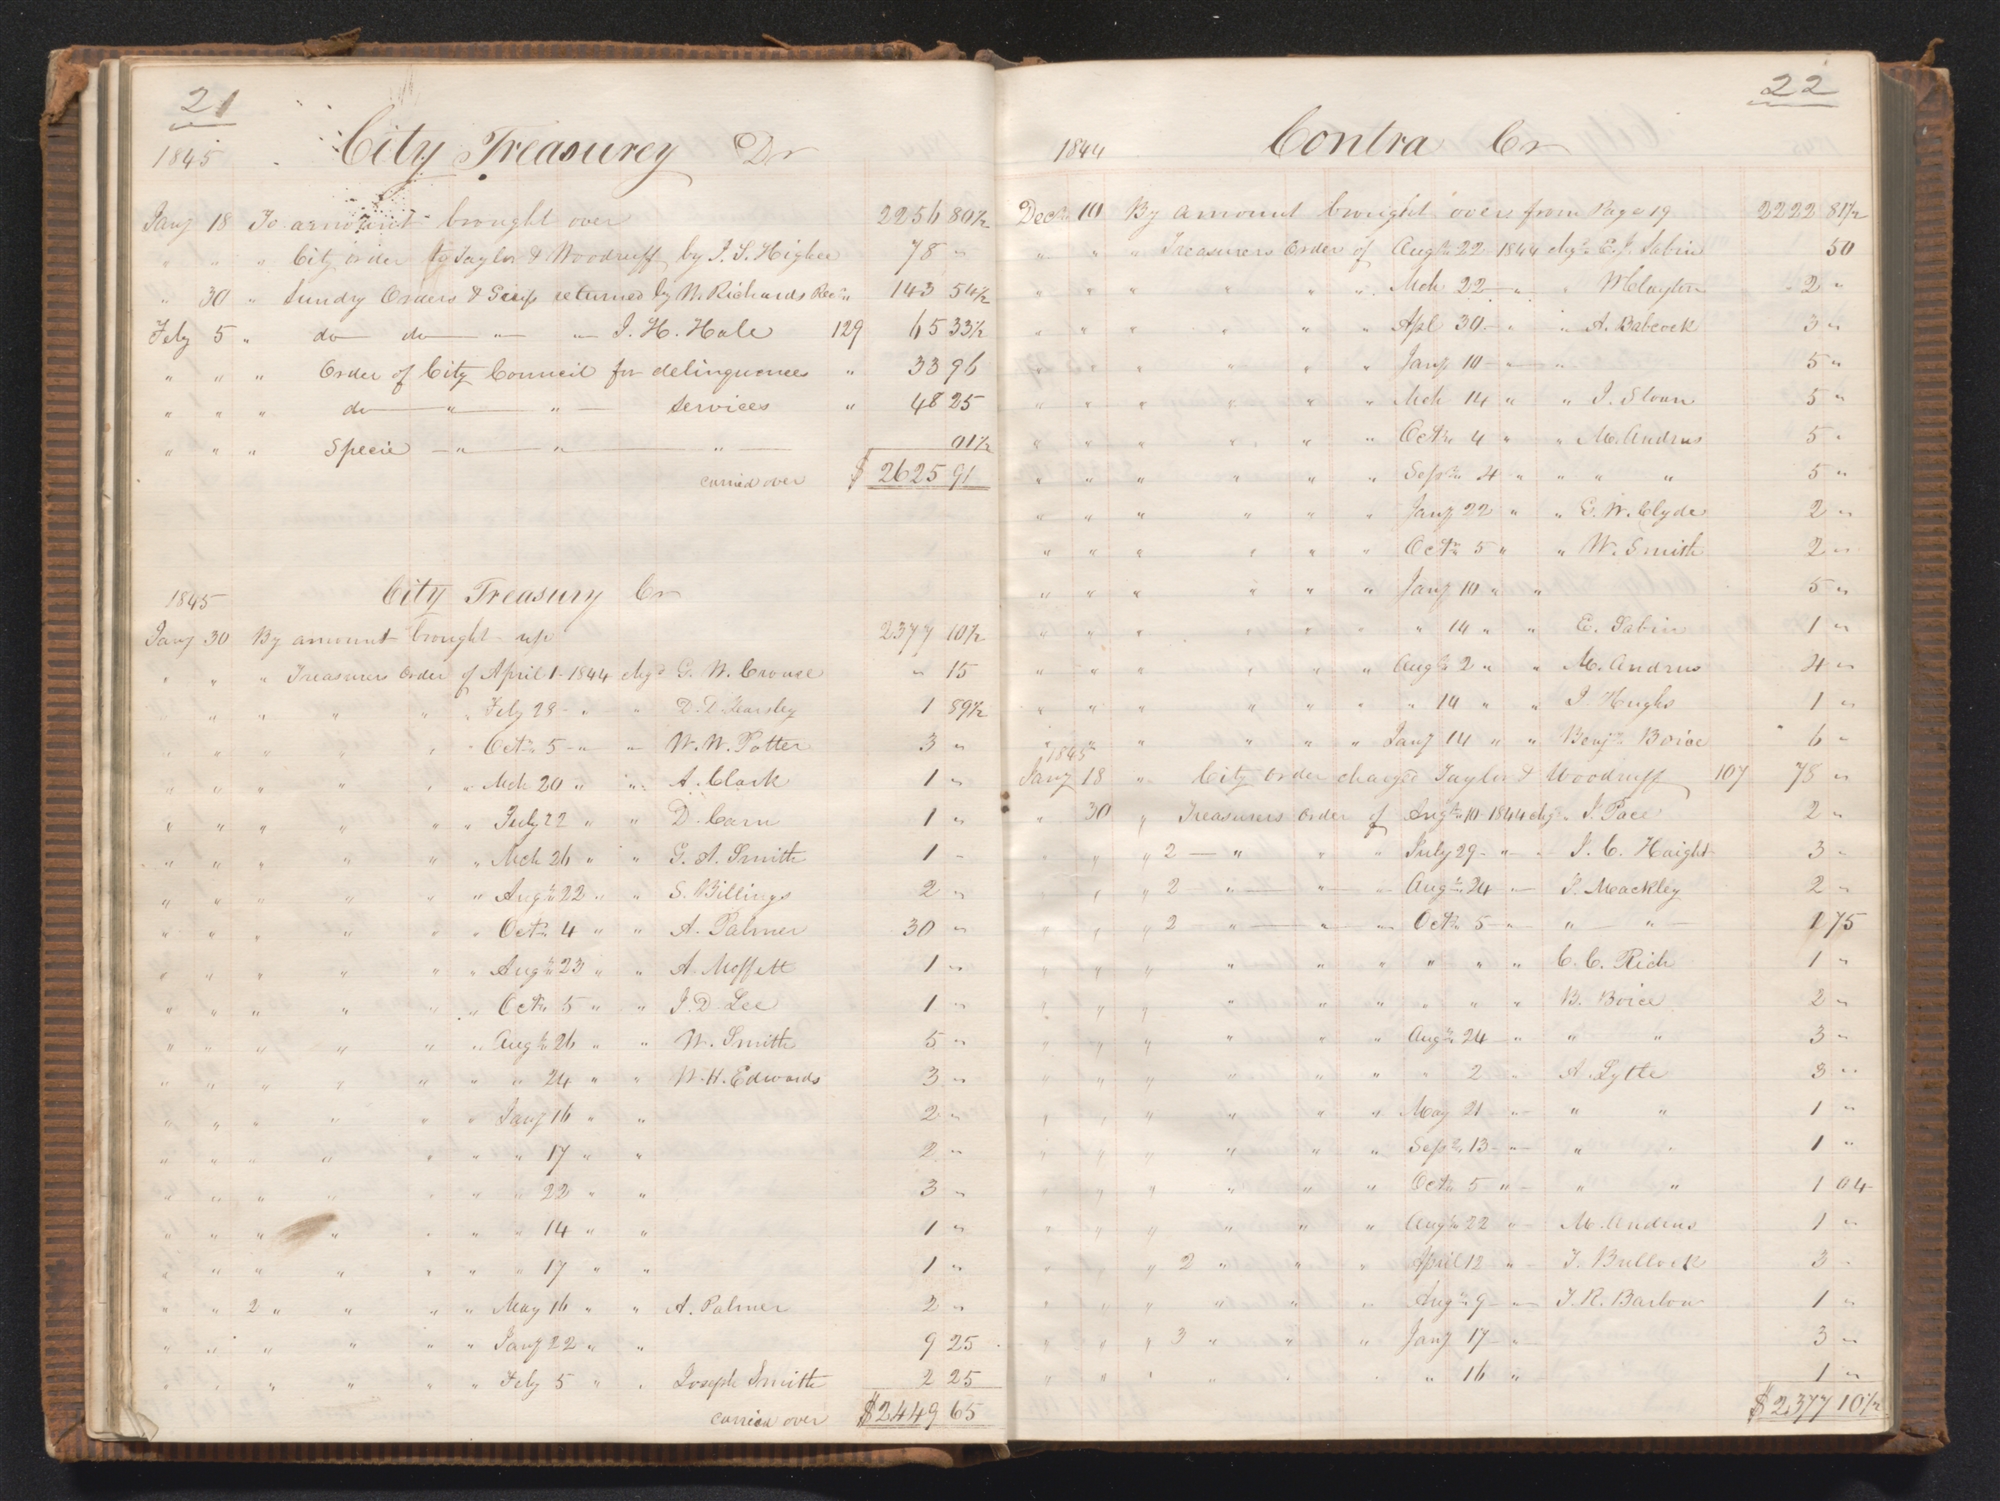 21
1845 City Treasurey Dr
Jany 18 To amount brought over 2256 80½
" " " City order to Taylor & Woodruff by J. S. Higbee 78 "
" 30 " Sundry Orders & Scrip returned by W. Richards Recr. 143 54½
Feby 5 " do do " " J. H. Hale 129 65 33½
" " " Order of City Council for delinquences " 33 96
" " " do " " services " 48 25
" " " Specie " " " 01½
carried over $ 2625 91
1845 City Treasury Cr
Jany 30 By amount brought up 2377 10½
" " " Treasurers Order of April 1 1844 chgd G. W. Crouse " 15
" " " " " " Feby 28 " " D. D. Yearsley 1 89½
" " " " " " Oct 5 " " W. W. Potter 3 "
" " " " " " Mch 20 " " A. Clark 1 "
" " " " " " July 22 " " D. Carn 1 "
" " " " " " Mch 26 " " G. A. Smith 1 "
" " " " " " Augt 22 " " S. Billings 2 "
" " " " " " Oct 4 " " A. Palmer 30 "
" " " " " " Augt 23 " " A. Moffett 1 "
" " " " " " Oct 5 " " J. D. Lee 1 "
" " " " " " Augt 26 " " W. Smith 5 "
" " " " " " " 24 " " W. H. Edwards 3 "
" " " " " " Jany 16 " " 2 "
" " " " " " " 17 " " 2 "
" " " " " " " 22 " " 3 "
" " " " " " " 14 " " 1 "
" " " " " " " 17 " " 1 "
" " 2 " " " " May 16 " " A. Palmer 2 "
" " " " " " Jany 22 " " 9 25
" " " " " " Feby 5 " " Joseph Smith 2 25
carried over $2449 65
22
1844 Contra Cr
Decr 10 By amount brought over from Page 19 2222 81½
" " " Treasurers Order of Augt 22 1844 chgd E. J. Sabin 50
" " " " " " Mch 22 " " W Clayton 2 "
" " " " " " Apl 30 " " A. Babcock 3 "
" " " " " " Jany 10 " " 5 "
" " " " " " Mch 14 " " J. Sloan 5 "
" " " " " " Oct 4 " " M. Andrus 5 "
" " " " " " Sept 4 " " " " 5 "
" " " " " " Jany 22 " " G. W. Clyde 2 "
" " " " " " Oct 5 " " W. Smith 2 "
" " " " " " Jany 10 " " 5 "
" " " " " " " 14 " " E. Sabin 1 "
" " " " " " Augt 2 " " M. Andrus 4 "
" " " " " " " 14 " " J. Hughs 1 "
" " " " " " Jany 14 " " Benjn Boice 6 "
1845
Jany 18 " City Order charged Taylor & Woodruff 107 78 "
" 30 " Treasurers Order of Augt 10 1844 chgd J. Pace 2 "
" " " 2 " " " July 29 " " I. C. Haight 3 "
" " " 2 " " " Augt 24 " J. Mackley 2 "
" " " 2 " " " Oct 5 " " " 1 75
" " " " " " " " " C. C. Rich 1 "
" " " " " " " " " B. Boice 2 "
" " " " " " Augt 24 " " " 3 "
" " " " " " " 2 " A. Lytle 3 "
" " " " " " May 21 " " " 1 "
" " " " " " Sept 13 " " " 1 "
" " " " " " Oct 5 " " " 1 04
" " " " " " Augt 22 " M. Andrus 1 "
" " " 2 " " " April 12 " T. Bullock 3 "
" " " " " " Augt 9 " I. R. Barlow 1 "
" " " 3 " " " Jany 17 " 3 "
" " " " " " " 16 " 1 "
$2,377 10½